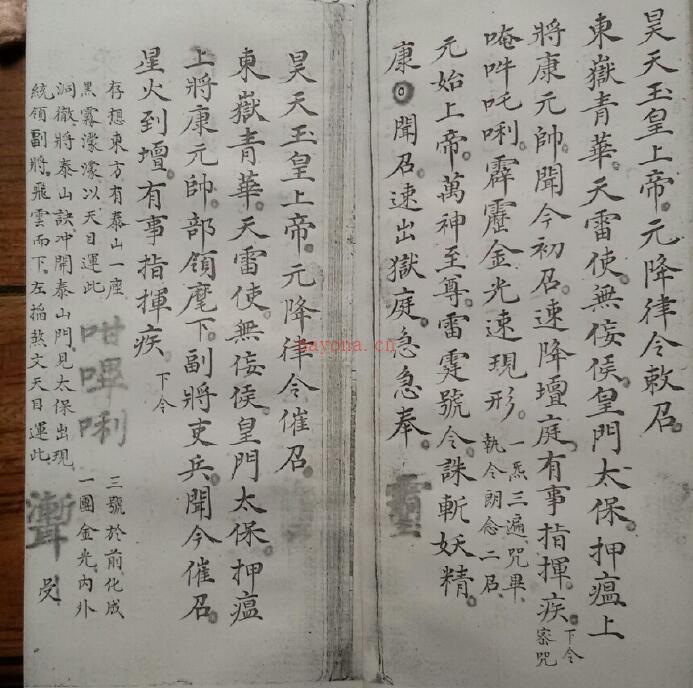 昊天玉皇上帝。元降律令敕召。
東嶽青華。天雷使。無佞侯。皇門太保。押瘟上
將康元帥。聞今初召。速降壇庭。有事指揮。疾。下令密咒
唵吽吒唎。霹靂金光速現形。一炁三遍咒畢執令朗念二召
元始上帝。萬神至尊。雷霆號令。誅斬妖精。
康 聞召速出獄庭。急急奉。
昊天玉皇上帝。元降律令催召。
東嶽青華。天雷使。無佞侯。皇門太保。押瘟
上將康元帥。部領麾下。副將吏兵。聞今催召。
星火到壇。有事指揮疾。下令
存想東方有泰山一座
黑霧濛濛以天目運此
咁嗶唎
三號於前化成
一團金光內外
洞徹將泰山訣冲開泰山門見太保出現
統領副將。飛雲而下。左掐煞文天目運此
nayona.cn